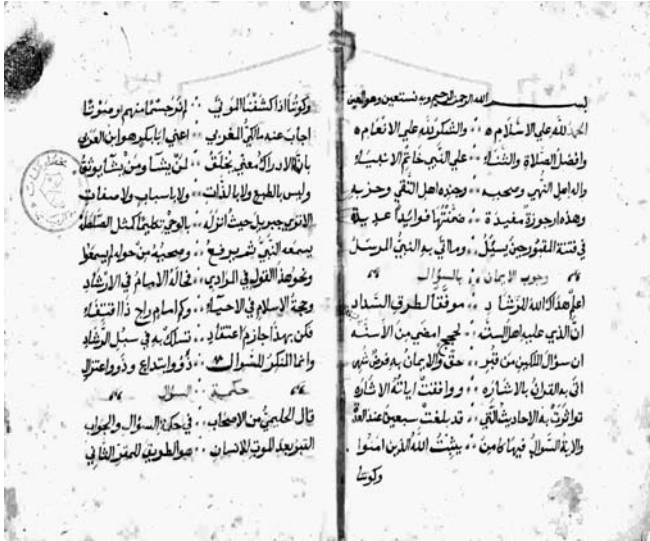 بسم الله الرحمن الرحيم وبه نستعين وهو المعين
الحمد لله علي الاسلام ه والشكر لله علي الانعام ه
وافضل الصلاة والثناء ∴ علي النبي خاتم الانبياء
واله اهل النهي وصحبه ∴ وجنده اهل التقي وحزبه
وهذه ارجوزة مفيدة ∴ ضمنتها فوايدا عديدة
في فتنة المقبور حين يسئل ∴ وما اتي به النبي المرسل
وجوب الايمان بالسؤال
اعلم هداك الله للرشاد ∴ موفقا لطرق السداد
ان الذي عليه اهل السنه ∴ لحجج امضي من الاسنه
ان سؤال الملكين من قبر ∴ حق والايمان به فرض شهر
اتي به القران بالاشاره ∴ ووافقت اياته الاشاره
تواترت به الاحاديث التي ∴ قد بلغت سبعين عند العدة
والاية السؤال فيها كامن ∴ يثبت الله الذين امنوا
وكوننا
وكوننا اذا كشفنا الموتي ∴ لم نر جسما منهم او صوتا
اجاب عنه مالكي المغربي ∴ اعني ابا بكر هو ابن العربي
بان الادراك لمعني يخلق ∴ لمن يشا ومن يشا يوثق
وليس بالطبع ولا بالذات ∴ ولا باسباب ولا صفات
الا تري جبريل حيث انزله ∴ بالوحي كمثل الصلصله
يسمعه النبي ثم يرفع ∴ وصحبه من حوله لم يسمعوا
ونحو هذا القول في المراد ∴ نحا له الامام في الارشاد
وحجة الاسلام في الاحياء ∴ وكم امام راح ذا اقتفاء
فكن بهذا جازم اعتقاد ∴ تسلك به في سبل الرشاد
وانما المنكر للسؤال ∴ ذوو ابتداع وذوو اعتزال
حكمة السؤال
قال الحليمي من الاصحاب ∴ في حكمة السؤال والجواب
القبر بعد الموت للانسان ∴ هو الطريق للمقر الثاني